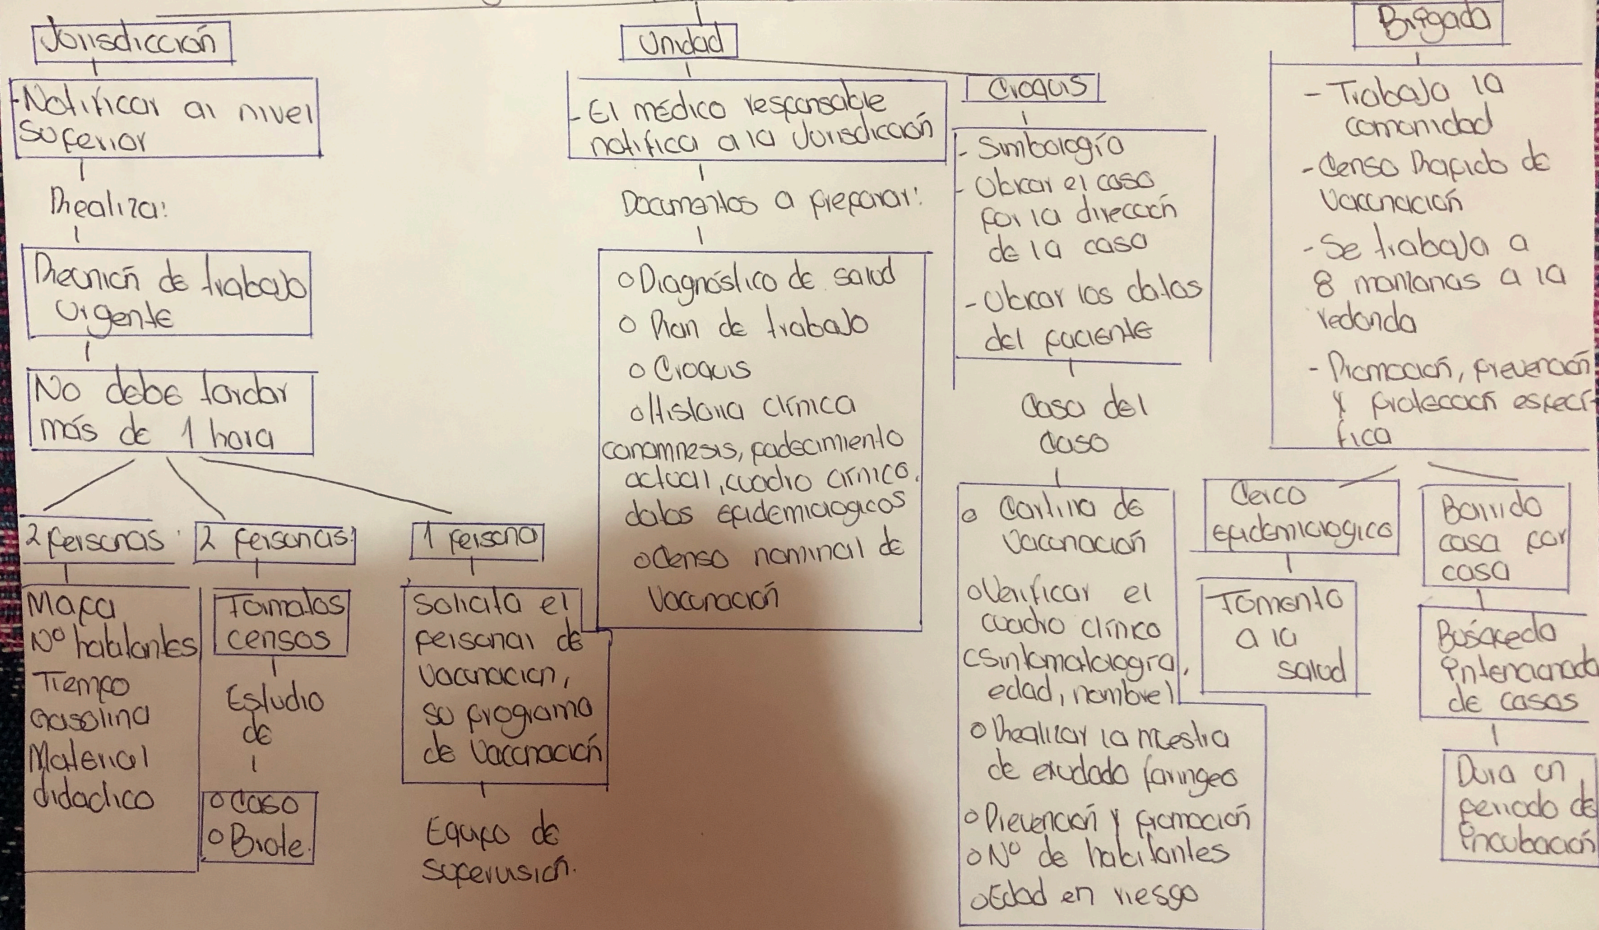 Jurisdicción
- Notificar al nivel
superior
Realiza:
Reunión de trabajo
Urgente
No debe tardar
más de 1 hora
2 personas
Mapa
Nº habitantes
Tiempo
Gasolina
Material
didactico
2 personas:
Formatos
censos
Estudio
de
o Caso
o Brote.
1 persona
Solicita el
personal de
vacunación,
su programa
de Vacunación
Equipo de
supervisión.
Unidad
- El médico responsable
notifica a la Jurisdicción
Documentos a preparar:
o Diagnóstico de salud
o Plan de trabajo
o Croquis
o Historia clínica
(anamnesis, padecimiento
actual), cuadro clínico,
datos epidemiologicos
o Censo nominal de
Vacunación
Croquis
- Simbología
- Ubicar el caso
por la dirección
de la casa
- Ubicar los datos
del paciente
Casa del
Caso
o Cartilla de
Vacunación
o Verificar el
cuadro clínico
(sintomatología,
edad, nombre)
o Realizar la muestra
de exudado faringeo
o Prevención y promoción
o Nº de habitantes
o Edad en riesgo
Brigada
- Trabaja la
comunidad
- Censo Rapido de
Vacunación
- Se trabaja a
8 manzanas a la
redonda
- Promoción, prevención
y protección especí-
fica
Cerco
epidemiologico
Fomento
a la
salud
Barrido
casa por
casa
Búsqueda
intencionada
de casos
Dura un
periodo de
incubación